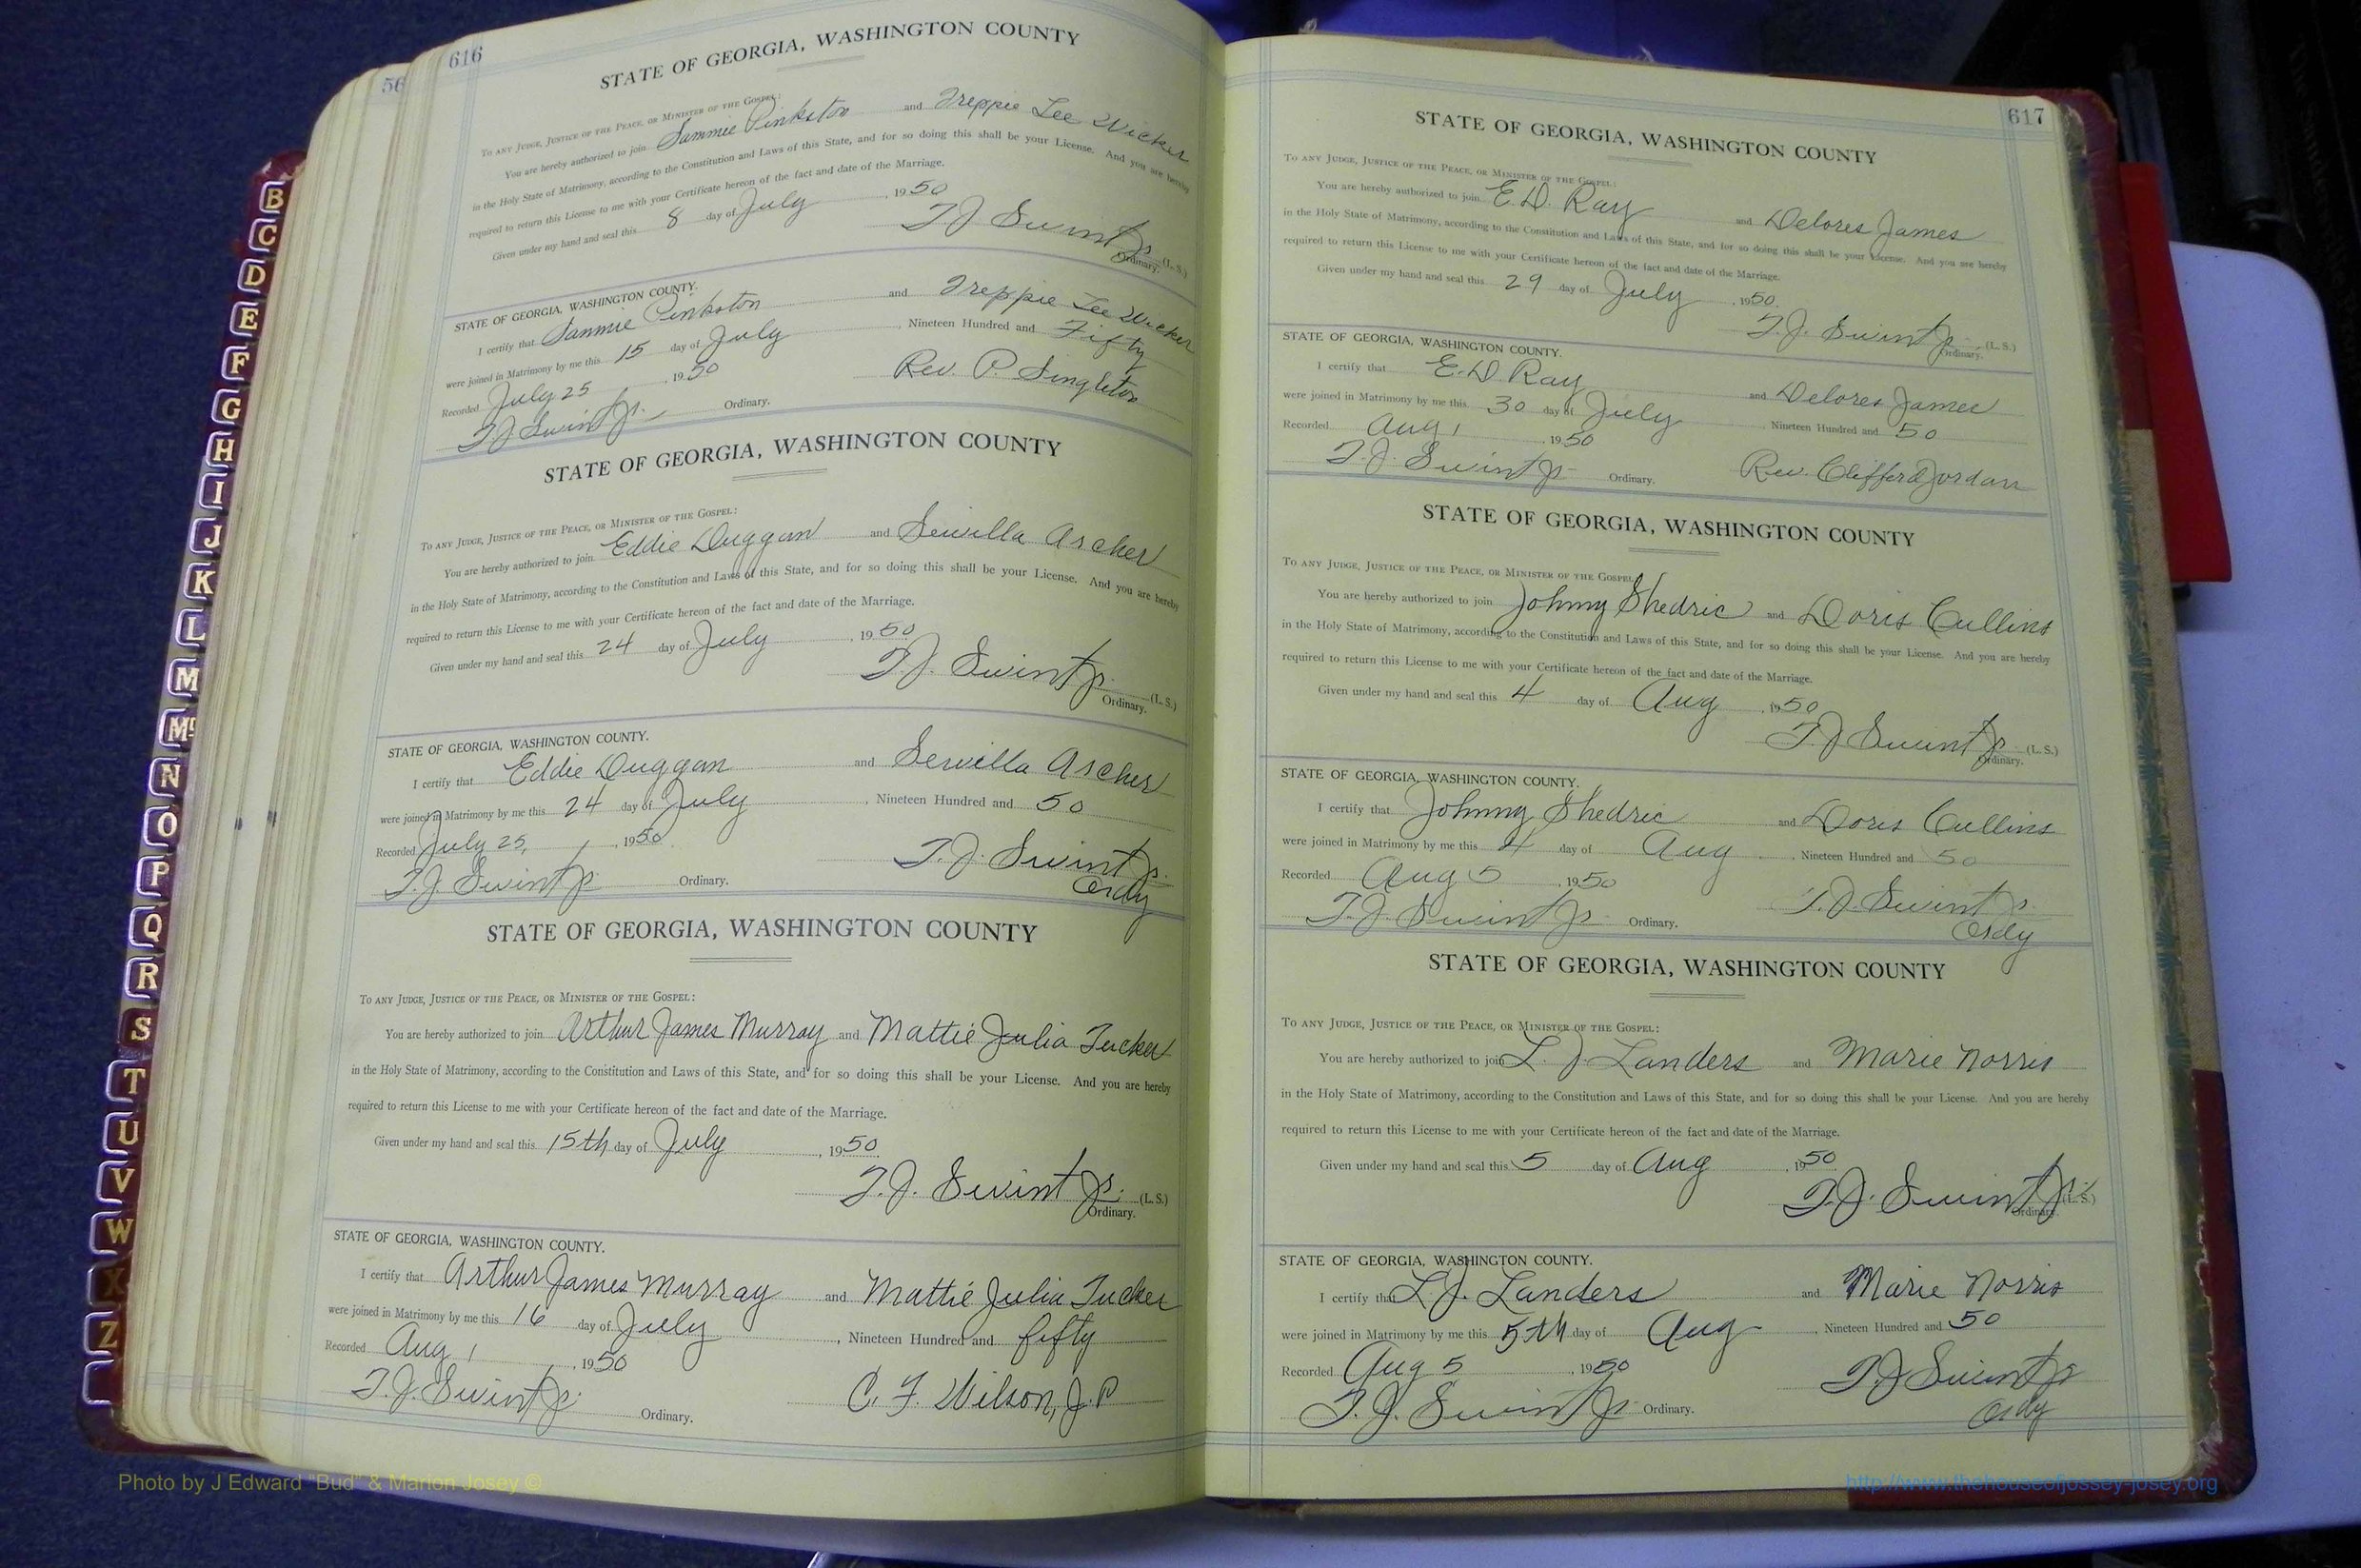 B
C
D
E
F
G
H
I
J
K
L
M
Mc
N
O
P
Q
R
S
T
U
V
W
X
Z
56
616
STATE OF GEORGIA, WASHINGTON COUNTY
To any Judge, Justice of the Peace, or Minister of the Gospel:
You are hereby authorized to join Sammie Pinkston and Treppie Lee Wicker
in the Holy State of Matrimony, according to the Constitution and Laws of this State, and for so doing this shall be your License. And you are hereby
required to return this License to me with your Certificate hereon of the fact and date of the Marriage.
Given under my hand and seal this 8 day of July, 1950
T J Swint Jr. (L. S.)
Ordinary.
STATE OF GEORGIA, WASHINGTON COUNTY.
I certify that Sammie Pinkston and Treppie Lee Wicker
were joined in Matrimony by me this 15 day of July, Nineteen Hundred and Fifty
Recorded July 25, 1950
Rev. P. Singleton
T J Swint Jr. Ordinary.
STATE OF GEORGIA, WASHINGTON COUNTY
To any Judge, Justice of the Peace, or Minister of the Gospel:
You are hereby authorized to join Eddie Duggan and Servilla Ascher
in the Holy State of Matrimony, according to the Constitution and Laws of this State, and for so doing this shall be your License. And you are hereby
required to return this License to me with your Certificate hereon of the fact and date of the Marriage.
Given under my hand and seal this 24 day of July, 1950
T.J. Swint Jr. (L. S.)
Ordinary.
STATE OF GEORGIA, WASHINGTON COUNTY.
I certify that Eddie Duggan and Servilla Ascher
were joined in Matrimony by me this 24 day of July, Nineteen Hundred and 50
Recorded July 25, 1950
T.J. Swint Jr.
T.J. Swint Jr Ordinary. Ordy
STATE OF GEORGIA, WASHINGTON COUNTY
To any Judge, Justice of the Peace, or Minister of the Gospel:
You are hereby authorized to join Arthur James Murray and Mattie Julia Tucker
in the Holy State of Matrimony, according to the Constitution and Laws of this State, and for so doing this shall be your License. And you are hereby
required to return this License to me with your Certificate hereon of the fact and date of the Marriage.
Given under my hand and seal this 15th day of July, 1950
T.J. Swint Jr. (L. S.)
Ordinary.
STATE OF GEORGIA, WASHINGTON COUNTY.
I certify that Arthur James Murray and Mattie Julia Tucker
were joined in Matrimony by me this 16 day of July, Nineteen Hundred and fifty
Recorded Aug 1, 1950
T.J. Swint Jr. Ordinary. C. F. Wilson, J.P
617
STATE OF GEORGIA, WASHINGTON COUNTY
To any Judge, Justice of the Peace, or Minister of the Gospel:
You are hereby authorized to join E.D. Ray and Delores James
in the Holy State of Matrimony, according to the Constitution and Laws of this State, and for so doing this shall be your License. And you are hereby
required to return this License to me with your Certificate hereon of the fact and date of the Marriage.
Given under my hand and seal this 29 day of July, 1950
T.J. Swint Jr. (L. S.)
Ordinary.
STATE OF GEORGIA, WASHINGTON COUNTY.
I certify that E.D. Ray and Delores James
were joined in Matrimony by me this 30 day of July, Nineteen Hundred and 50
Recorded Aug 1, 1950
T.J. Swint Jr Ordinary. Rev. Clifford Jordan
STATE OF GEORGIA, WASHINGTON COUNTY
To any Judge, Justice of the Peace, or Minister of the Gospel:
You are hereby authorized to join Johnny Shedric and Doris Cullins
in the Holy State of Matrimony, according to the Constitution and Laws of this State, and for so doing this shall be your License. And you are hereby
required to return this License to me with your Certificate hereon of the fact and date of the Marriage.
Given under my hand and seal this 4 day of Aug, 1950
T.J Swint Jr (L. S.)
Ordinary.
STATE OF GEORGIA, WASHINGTON COUNTY.
I certify that Johnny Shedric and Doris Cullins
were joined in Matrimony by me this 4 day of Aug, Nineteen Hundred and 50
Recorded Aug 5, 1950
T.J. Swint Jr. Ordinary. T.J. Swint Jr.
Ordy
STATE OF GEORGIA, WASHINGTON COUNTY
To any Judge, Justice of the Peace, or Minister of the Gospel:
You are hereby authorized to join L. J. Landers and Marie Norris
in the Holy State of Matrimony, according to the Constitution and Laws of this State, and for so doing this shall be your License. And you are hereby
required to return this License to me with your Certificate hereon of the fact and date of the Marriage.
Given under my hand and seal this 5 day of Aug, 1950
T.J. Swint Jr. (L. S.)
Ordinary.
STATE OF GEORGIA, WASHINGTON COUNTY.
I certify that L.J. Landers and Marie Norris
were joined in Matrimony by me this 5th day of Aug, Nineteen Hundred and 50
Recorded Aug 5, 1950
T.J Swint Jr
T.J. Swint Jr Ordinary. Ordy
Photo by J Edward "Bud" & Marion Josey ©
http://www.thehouseofjossey-josey.org